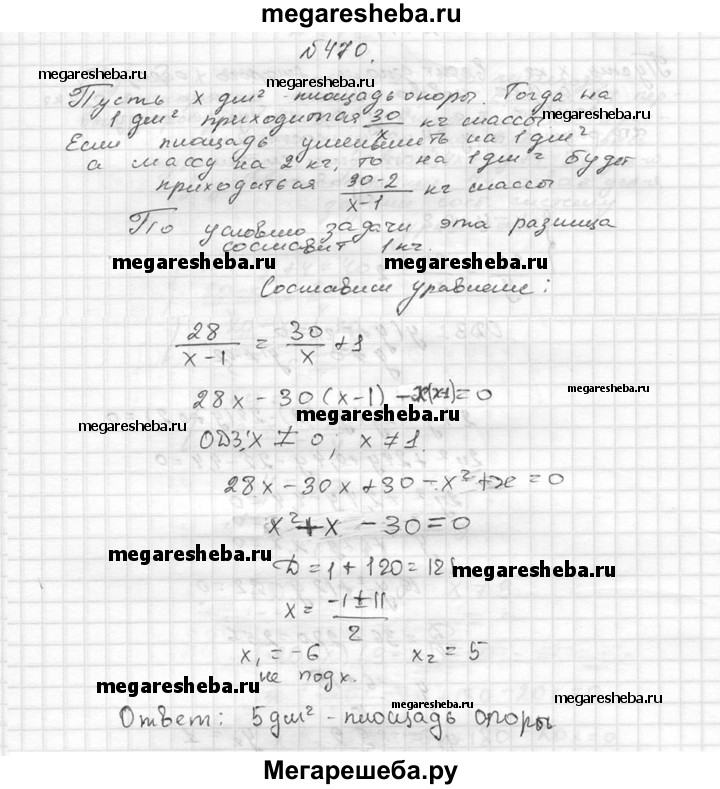 megaresheba.ru
№470.
megaresheba.ru
megaresheba.ru
Пусть x дм² - площадь опоры. Тогда на
1 дм² приходится 30/x кг массы
megaresheba.ru
Если площадь уменьшить на 1 дм²
а массу на 2 кг, то на 1 дм² будет
приходиться (30-2)/(x-1) кг массы
По условию задачи, эта разница
составит 1 кг.
megaresheba.ru megaresheba.ru
Составим уравнение:
28/(x-1) = 30/x + 1
28x - 30(x-1) - x(x-1) = 0
megaresheba.ru
megaresheba.ru
megaresheba.ru
ОДЗ: x ≠ 0; x ≠ 1.
28x - 30x + 30 - x² + x = 0
x² + x - 30 = 0
megaresheba.ru
D = 1 + 120 = 12
megaresheba.ru
x = (-1 ± 11)/2
x₁ = -6 x₂ = 5
не подх.
megaresheba.ru
megaresheba.ru
megaresheba.ru
Ответ: 5 дм² - площадь опоры
Мегарешеба.ру